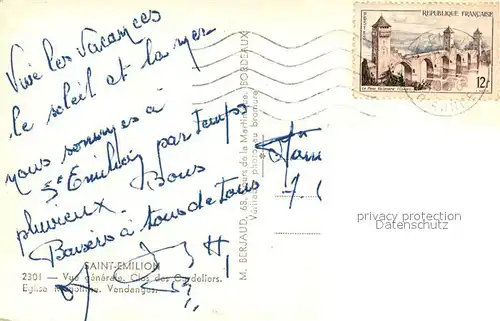 Vive les vacances
le soleil et la mer
nous sommes à
St Emilion par temps
pluvieux. Bons
Baisers à tous de tous
SAINT-EMILION
2301 - Vue générale. Clos des Cordeliers.
Eglise Monolithe. Vendanges.
M. BERJAUD, 68, Cours de la Martinique, (BORDEAUX)
photo au bromure
REPUBLIQUE FRANÇAISE
POSTES
12f
privacy protection